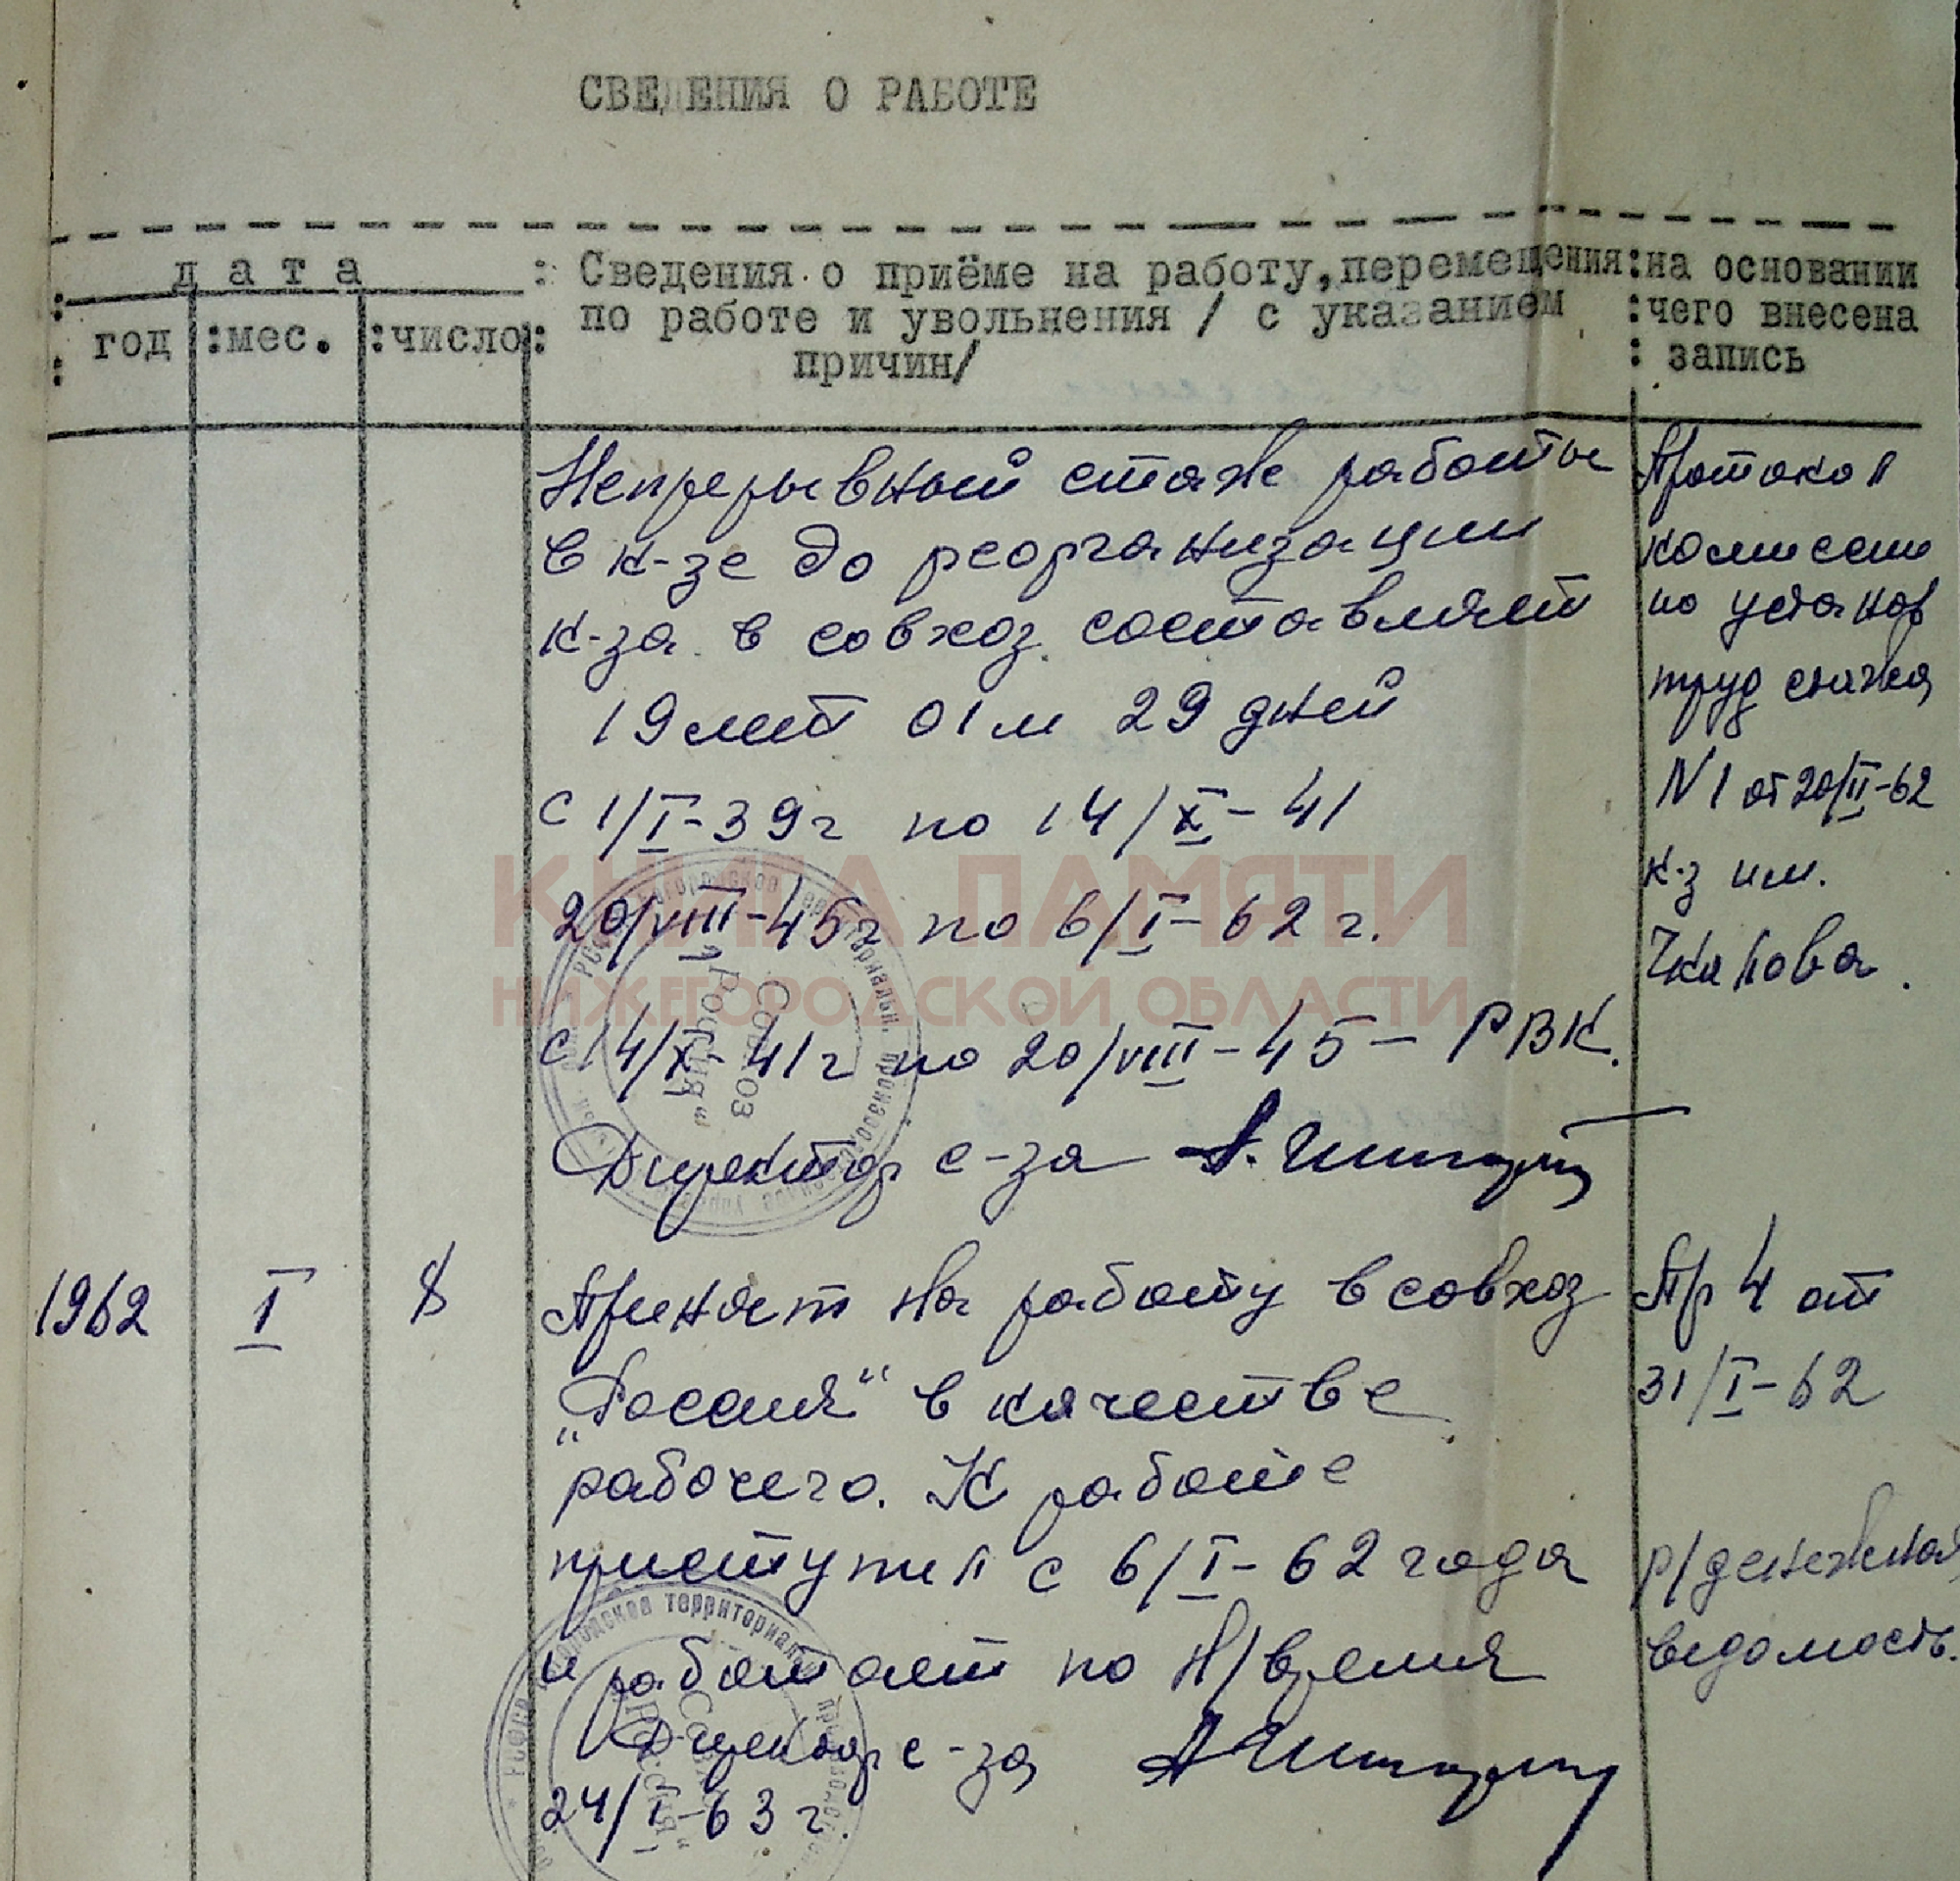 СВЕДЕНИЯ О РАБОТЕ
дата
год :мес. :число:
: Сведения о приёме на работу,перемещения
по работе и увольнения / с указанием
причин/
:на основании
:чего внесена
: запись
Непрерывный стаж работы
в к-зе до реорганизации
к-за в совхоз составляет
19 лет 01 м 29 дней
с 1/I-39г по 14/X-41
20/VIII-45г по 6/I-62г.
с 14/X-41г по 20/VIII-45 - РВК.
Директор с-за
Протокол
комиссии
по установ
труд стажа
N1 от 20/II-62
к-з им.
Чкалова.
1962 I 8
Принят на работу в совхоз
„Россия“ в качестве
рабочего. К работе
приступил с 6/I-62 года
и работает по н/время
Директор с-за
24/I-63г.
Пр 4 от
31/I-62
р/денежная
ведомость.
КНИГА ПАМЯТИ
НИЖЕГОРОДСКОЙ ОБЛАСТИ
Совхоз
„Россия“